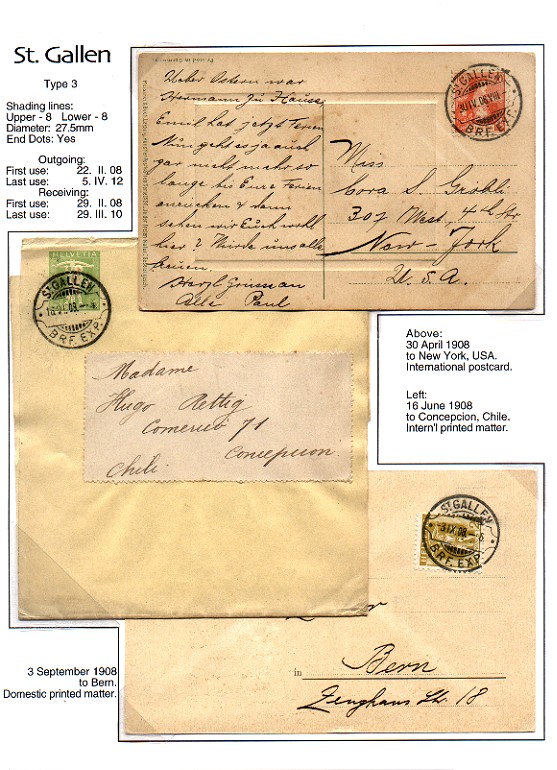 St. Gallen
Type 3
Shading lines:
Upper - 8 Lower - 8
Diameter: 27.5mm
End Dots: Yes
Outgoing:
First use: 22. II. 08
Last use: 5. IV. 12
Receiving:
First use: 29. II. 08
Last use: 29. III. 10
Ueber Ostern war
Hermann zu Hause
Emil hat jetzt Ferien
Nun geht es ja auch
gar nicht mehr so
lange bis Eure Ferien
anrücken & dann
sehen wir Euch wohl
hier? Würde uns alle
freuen.
Herzl Gruss an
Alle Paul
ST. GALLEN
BRF. EXP.
Miss
Cora S. Gröbli
307 West, 4th Str
New-York
U.S.A.
HELVETIA
ST. GALLEN
BRF. EXP.
Madame
Hugo Rettig
Comercio 71
Concepcion
Chili
Above:
30 April 1908
to New York, USA.
International postcard.
Left:
16 June 1908
to Concepcion, Chile.
Intern'l printed matter.
ST. GALLEN
3 IX. 08
BRF. EXP.
in Bern
Zeughaus Str. 18
3 September 1908
to Bern.
Domestic printed matter.